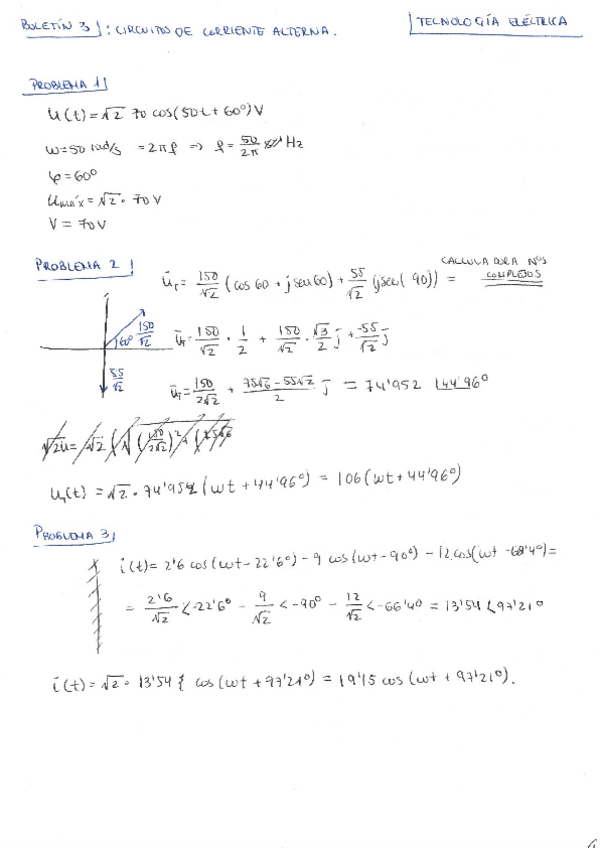 BOLETÍN 3: CIRCUITOS DE CORRIENTE ALTERNA.
TECNOLOGÍA ELÉCTRICA
PROBLEMA 1
u(t)=√2 70 cos(50t+60º)V
ω=50 rad/s =2πf => f=50/2π Hz
φ=60º
Umáx=√2·70V
V=70V
PROBLEMA 2
CALCULADORA NOS COMPLEJOS
ūT= 150/√2 (cos60+jsen60)+55/√2 (jsen(90)) =
60º 150/√2
55/√2
ūT=150/√2 · 1/2 + 150/√2 · √3/2 j + -55/√2 j
ūT=150/2√2 + 75√6-55√2/2 j = 74'952 ∠44'96º
u(t)=√2·74'952(ωt+44'96º)=106(ωt+44'96º)
PROBLEMA 3
i(t)=2'6 cos(ωt-22'6º)-9 cos(ωt-90º)-12cos(ωt-68'4º)=
= 2'6/√2 <-22'6º - 9/√2 <-90º - 12/√2 <-66'4º = 13'54 <97'21º
i(t)=√2·13'54 { cos(ωt+97'21º)=19'15 cos(ωt+97'21º).